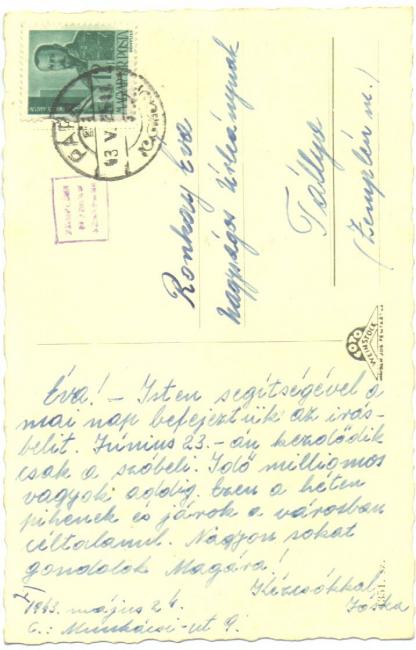 MAGYAR POSTA
PÁPA
Ronkay Éva
nagyságos Úrleánynak
Tállya
(Zemplén m.)
FOTO
WEINSTOCK
Éva! – Isten segítségével a
mai nap befejeztük az írás-
belit. Június 23.-án kezdődik
csak a szóbeli. Idő milliomos
vagyok addig. Ezen a héten
pihenek és járok a városban
céltalanul. Nagyon sokat
gondolok Magára!
Kézcsókkal,
Jóska
1943. május 24.
C.: Munkácsi-út 9.